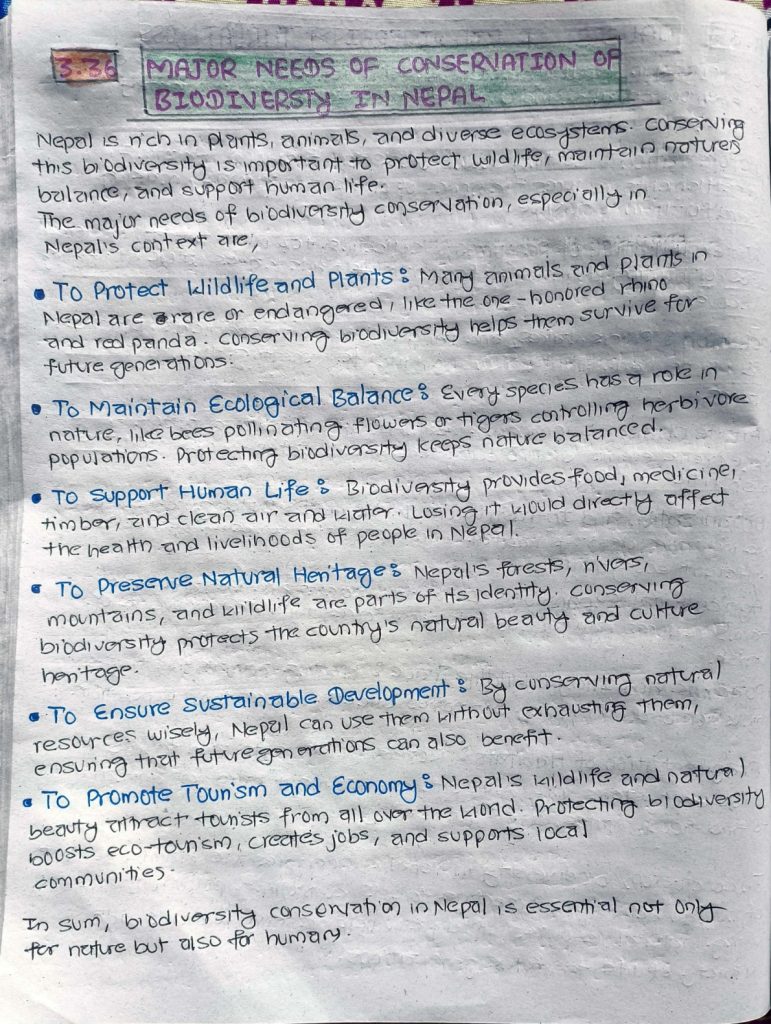 3.36 MAJOR NEEDS OF CONSERVATION OF
BIODIVERSTY IN NEPAL
Nepal is rich in plants, animals, and diverse ecosystems. Conserving
this biodiversity is important to protect wildlife, maintain natures
balance, and support human life.
The major needs of biodiversity conservation, especially in
Nepal's context are,
• To Protect Wildlife and Plants: Many animals and plants in
Nepal are rare or endangered, like the one-honored rhino
and red panda. Conserving biodiversity helps them survive for
future generations.
• To Maintain Ecological Balance: Every species has a role in
nature, like bees pollinating flowers or tigers controlling herbivore
populations. Protecting biodiversity keeps nature balanced.
• To Support Human Life: Biodiversity provides food, medicine,
timber, and clean air and water. Losing it would directly affect
the health and livelihoods of people in Nepal.
• To Preserve Natural Heritage: Nepal's forests, rivers,
mountains, and wildlife are parts of its identity. Conserving
biodiversity protects the country's natural beauty and culture
heritage.
• To Ensure Sustainable Development: By conserving natural
resources wisely, Nepal can use them without exhausting them,
ensuring that future generations can also benefit.
• To Promote Tourism and Economy: Nepal's wildlife and natural
beauty attract tourists from all over the world. Protecting biodiversity
boosts eco-tourism, creates jobs, and supports local
communities.
In sum, biodiversity conservation in Nepal is essential not only
for nature but also for humany.